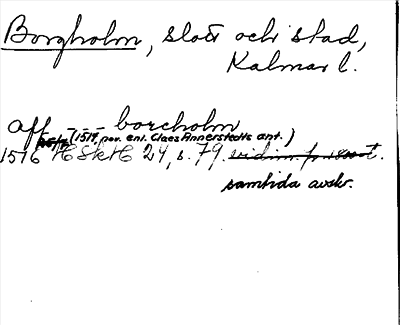 Borgholm, slott och stad,
Kalmar l.
aff - - borcholm
(1517, nov. enl. Claes Annerstedts ant.)
1516 HSkH 24, s. 79.
samtida avskr.